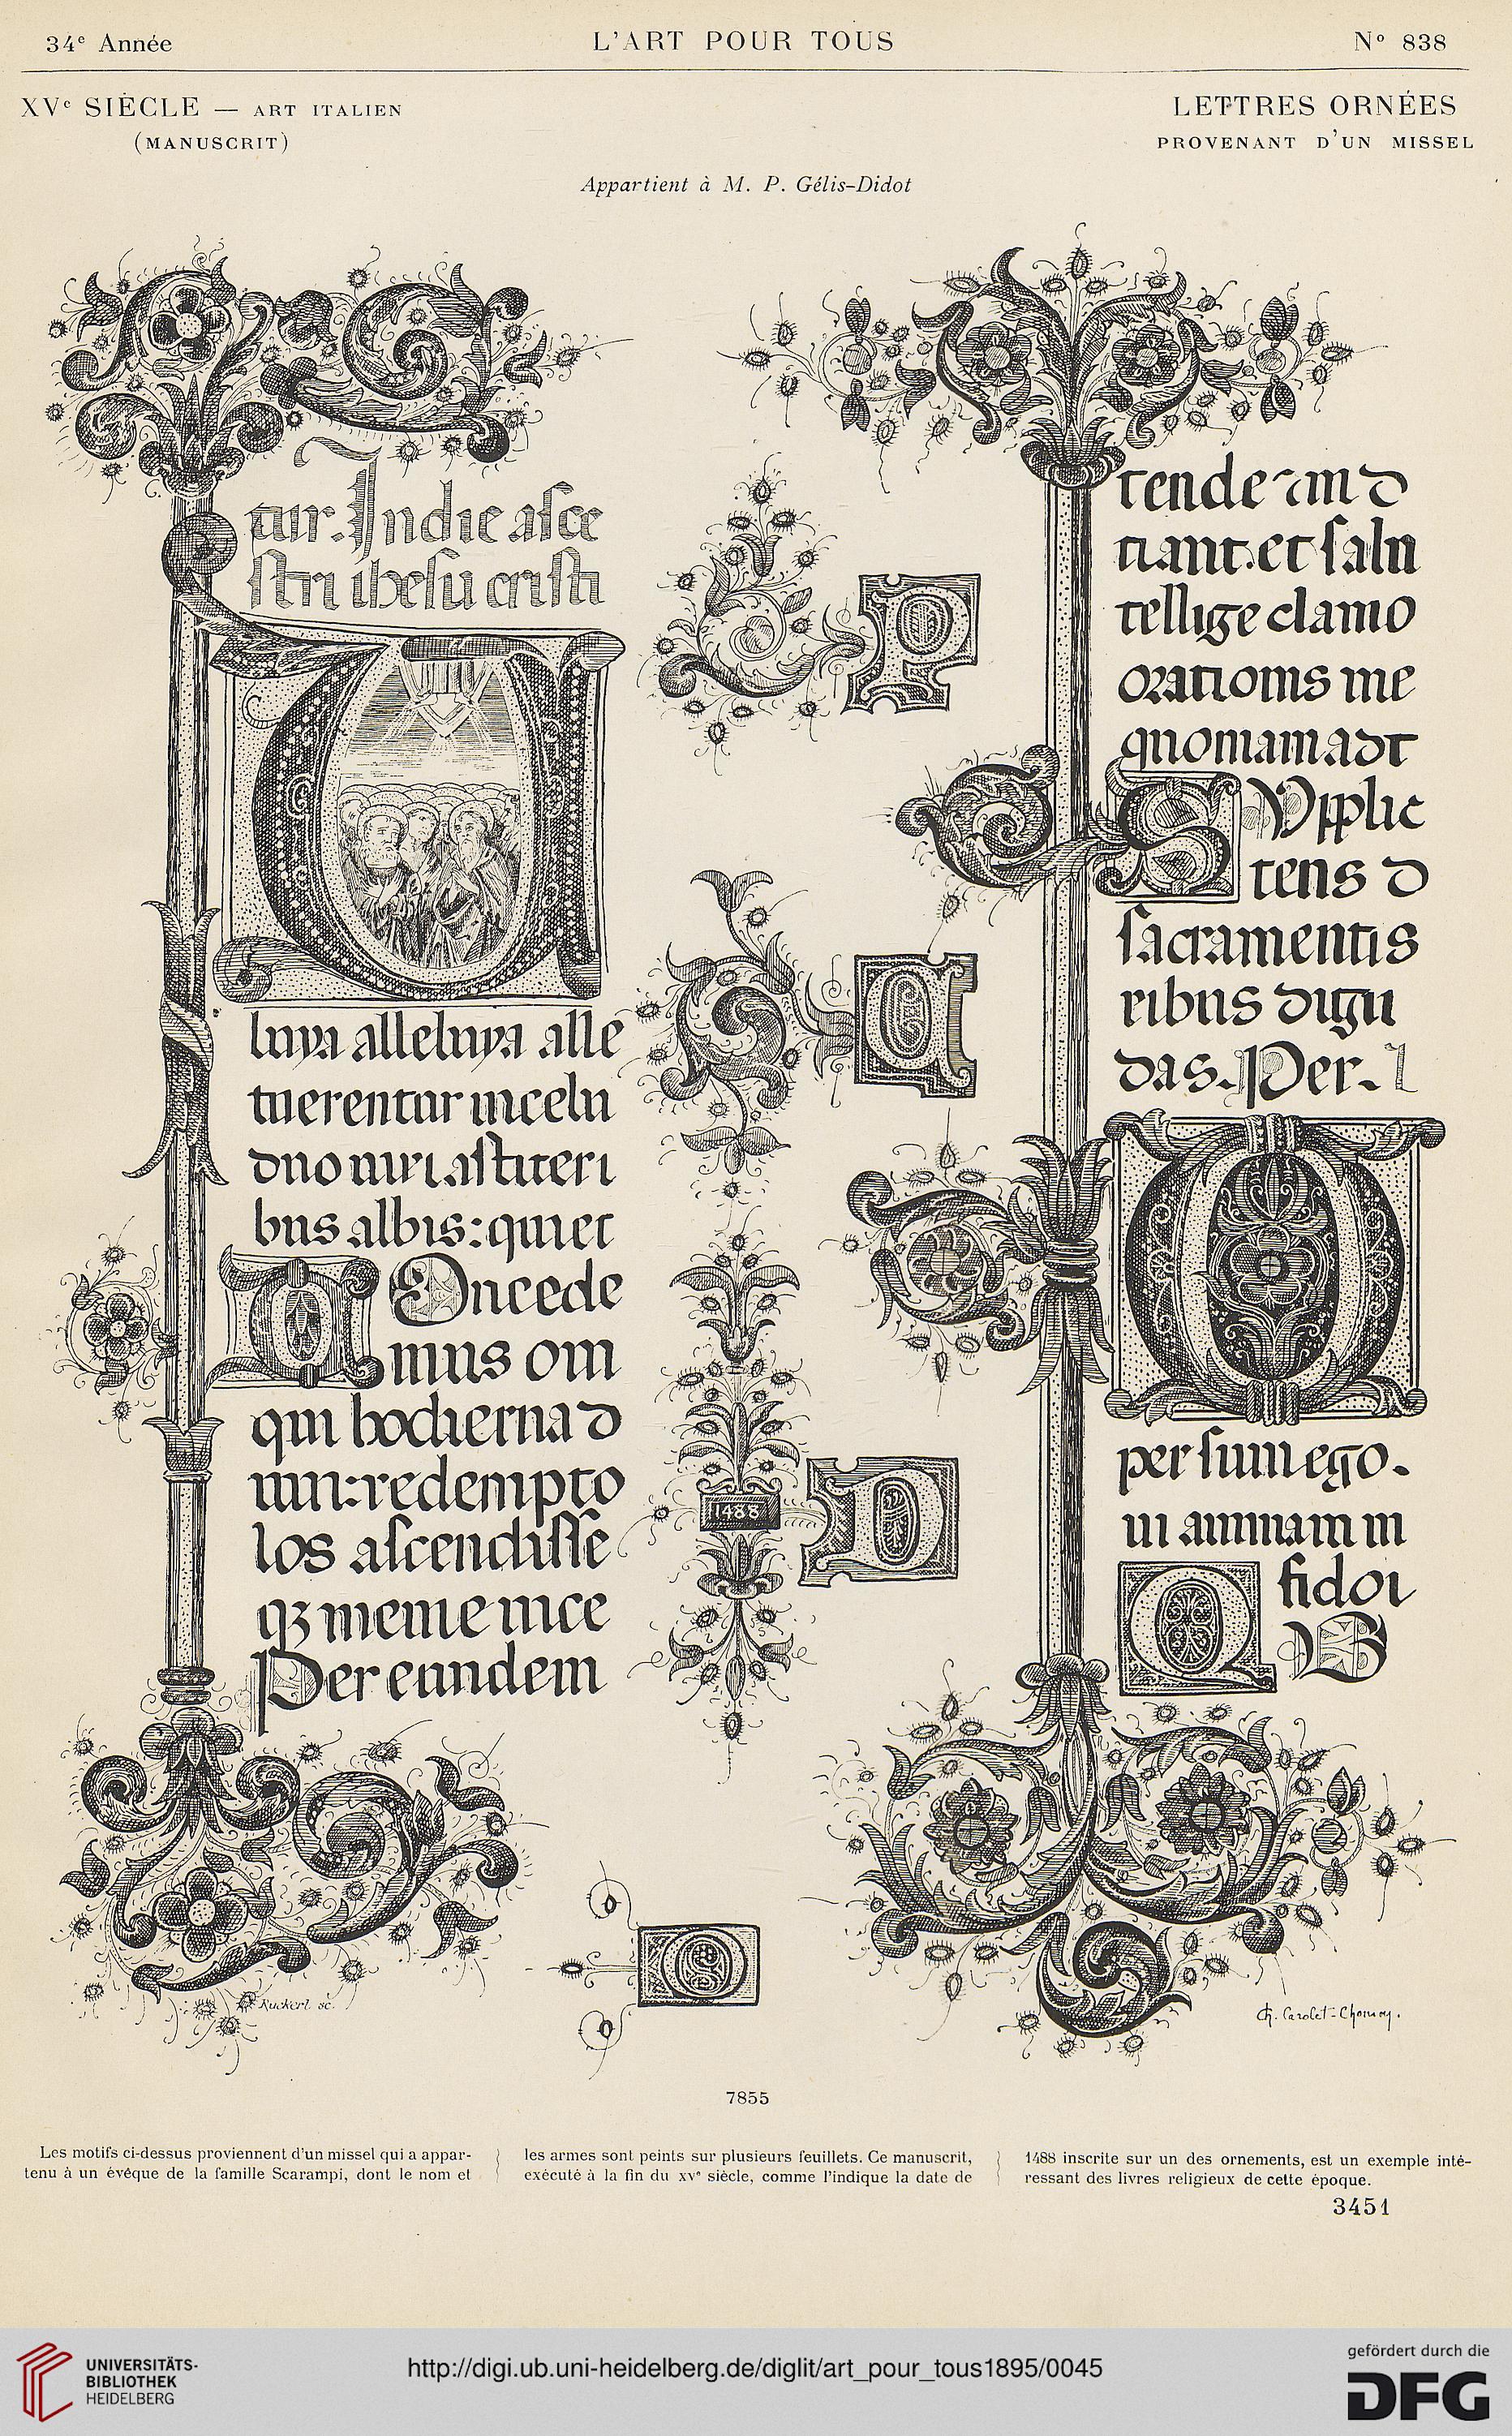 34e Année
L'ART POUR TOUS
No 838
XVe SIÈCLE — ART ITALIEN
(MANUSCRIT)
LETTRES ORNÉES
PROVENANT D'UN MISSEL
Appartient à M. P. Gélis-Didot
tur. In die asce
stri ihesu cristi
V
luya alleluya alle
tuerentur incelu
dno uiri astiteri
bus albis: qui et
Oncede
mus om
qui hodierna d
num: redempto
los ascendisse
qz meme ince
Per eundem
P
1488
D
tendetin d
tiant. et salu
tellige clamo
orationis me
quoniam adt
S Vpplic
tens d
sacramentis
ribus dign
das. Per. l
O
per sum ego.
ui animam m
Q fidoi
B
Ruckert sc.
Ch. Carolet-Chomey.
7855
Les motifs ci-dessus proviennent d'un missel qui a appar-
tenu à un évêque de la famille Scarampi, dont le nom et
les armes sont peints sur plusieurs feuillets. Ce manuscrit,
exécuté à la fin du XVe siècle, comme l'indique la date de
1488 inscrite sur un des ornements, est un exemple inté-
ressant des livres religieux de cette époque.
3451
UNIVERSITÄTS-
BIBLIOTHEK
HEIDELBERG
http://digi.ub.uni-heidelberg.de/diglit/art_pour_tous1895/0045
gefördert durch die
DFG